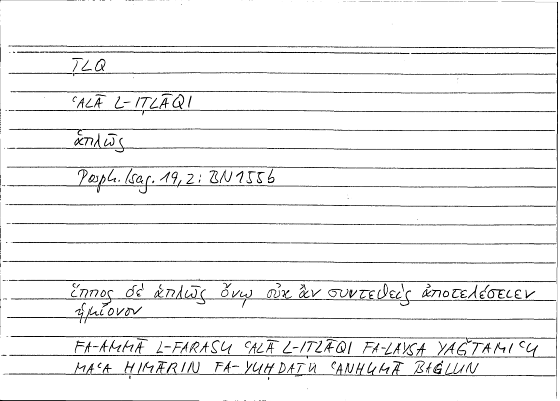 ṬLQ
ʿALĀ L-IṬLĀQI
ἁπλῶς
Porph. Isag. 19,2: BN 155b
ἵππος δὲ ἁπλῶς ὄνῳ οὐκ ἂν συντεθεὶς ἀποτελέσειεν
ἡμίονον
FA-AMMĀ L-FARASU ʿALĀ L-IṬLĀQI FA-LAYSA YAǦTAMIʿU
MAʿA ḤIMĀRIN FA-YUḤDAṮU ʿANHUMĀ BAĠLUN